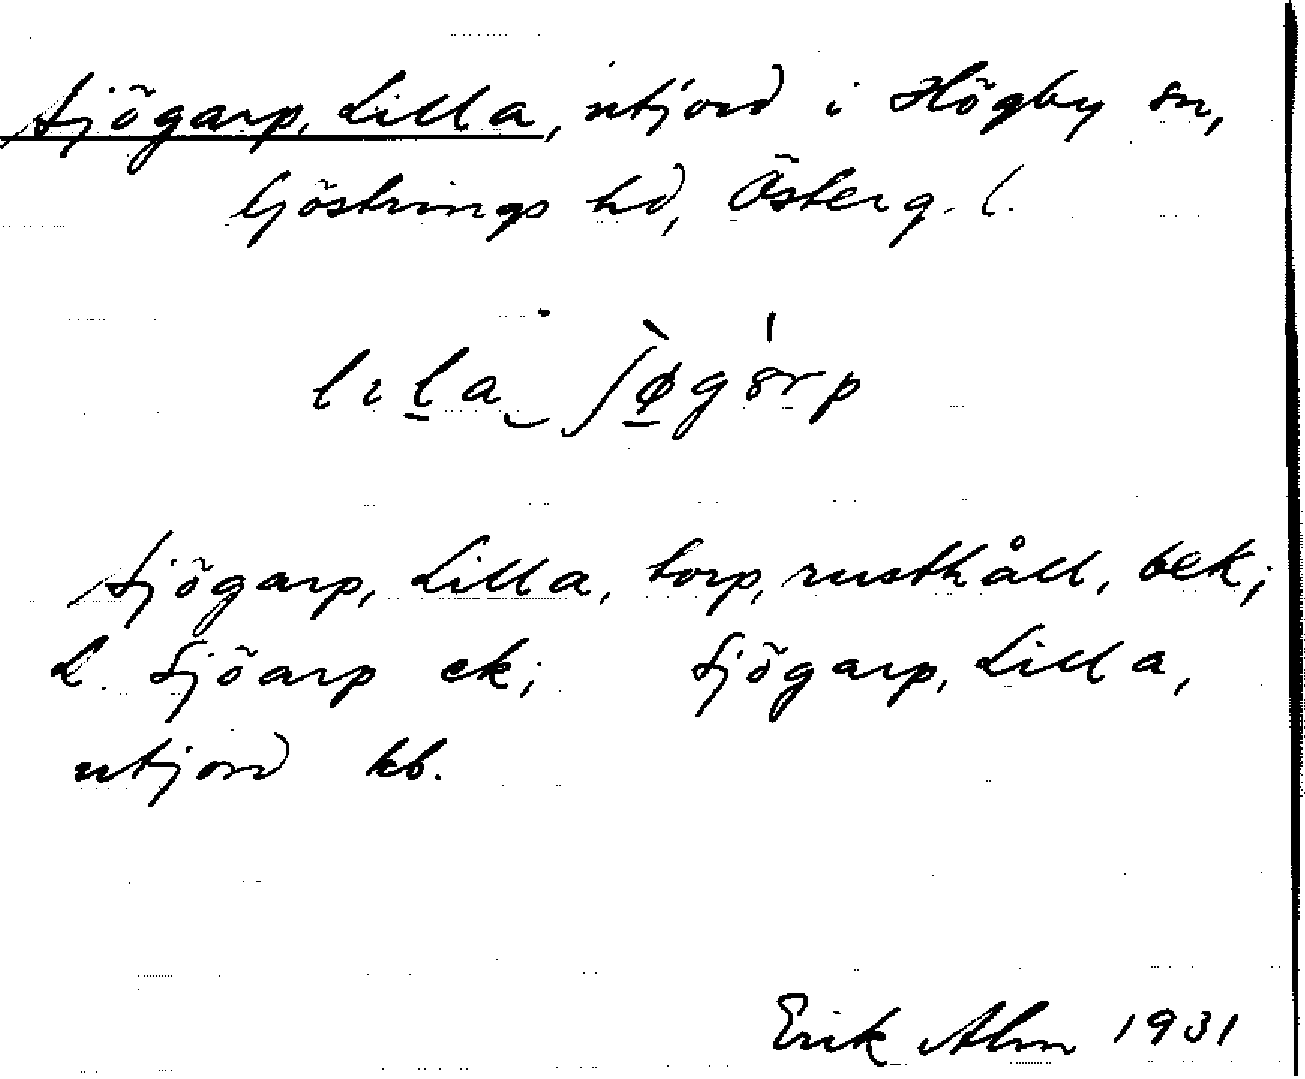 Sjögarp, Lilla, utjord i Högby sn,
Göstrings hd, Österg. l.
Sjögarp, Lilla, torp, rusthåll, bek;
L. Sjöarp ek; Sjögarp, Lilla,
utjord kb.
Erik Alm 1931